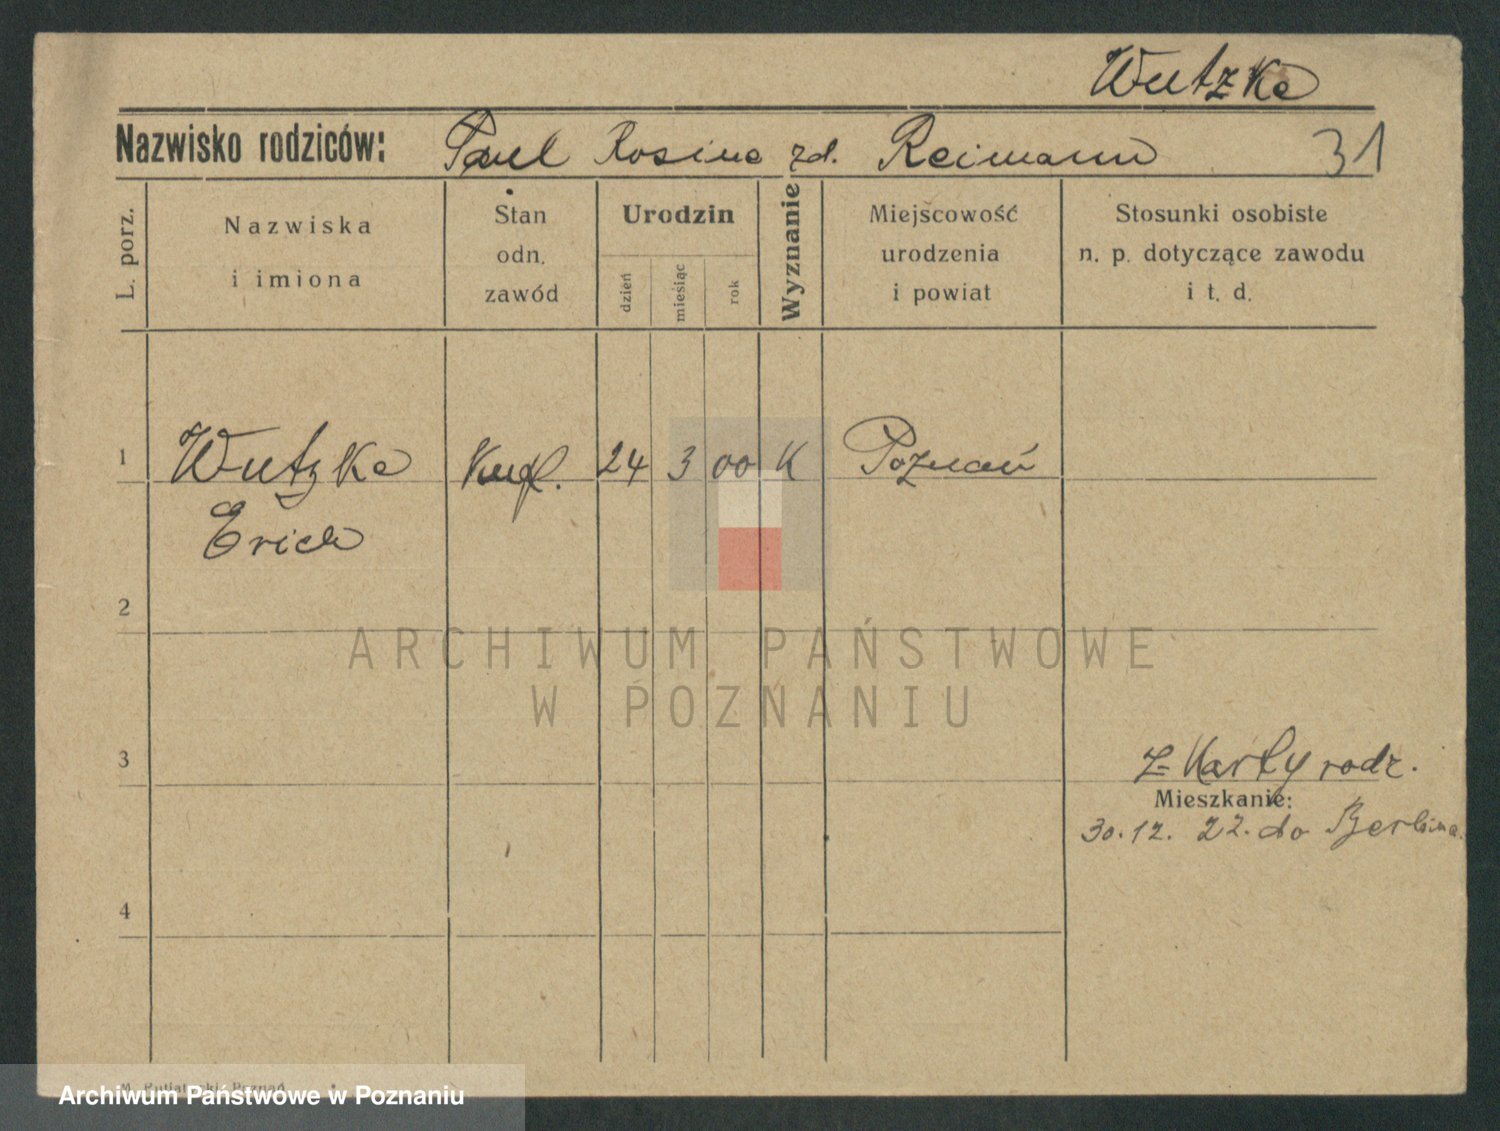 Wutzke
Nazwisko rodziców: Paul Rosine zd. Reimann 31
L. porz.
Nazwiska
i imiona
Stan
odn.
zawód
Urodzin
dzień
miesiąc
rok
Wyznanie
Miejscowość
urodzenia
i powiat
Stosunki osobiste
n. p. dotyczące zawodu
i t. d.
1 Wutzke 24 3 00 K Poznań
Erich
2
ARCHIWUM PAŃSTWOWE
W POZNANIU
3
z Karty rodz.
Mieszkanie:
30.12. 22. do Berlina.
4
Archiwum Państwowe w Poznaniu